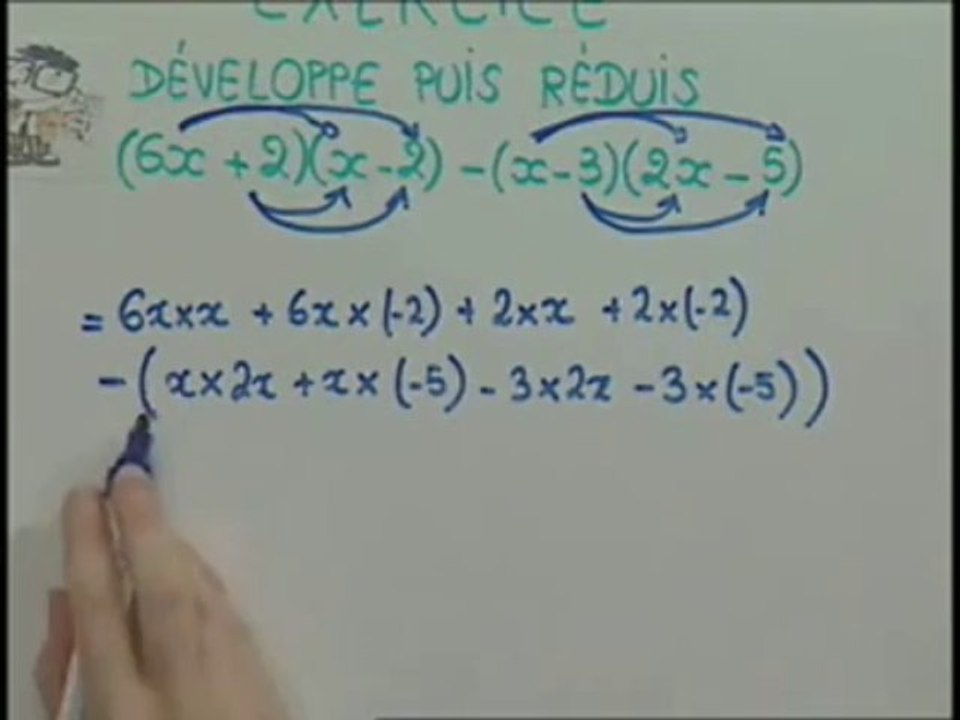 EXERCICE
DÉVELOPPE PUIS RÉDUIS
(6x + 2)(x - 2) - (x - 3)(2x - 5)
= 6x×x + 6x×(-2) + 2×x + 2×(-2)
- (x×2x + x×(-5) - 3×2x - 3×(-5))